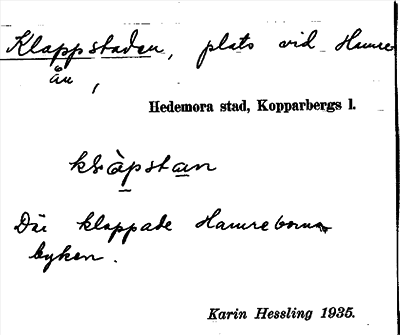 Klappstaden, plats vid Hamre
ån,
Hedemora stad, Kopparbergs l.
klàpstan
Där klappade Hamreborna
byken.
Karin Hessling 1935.